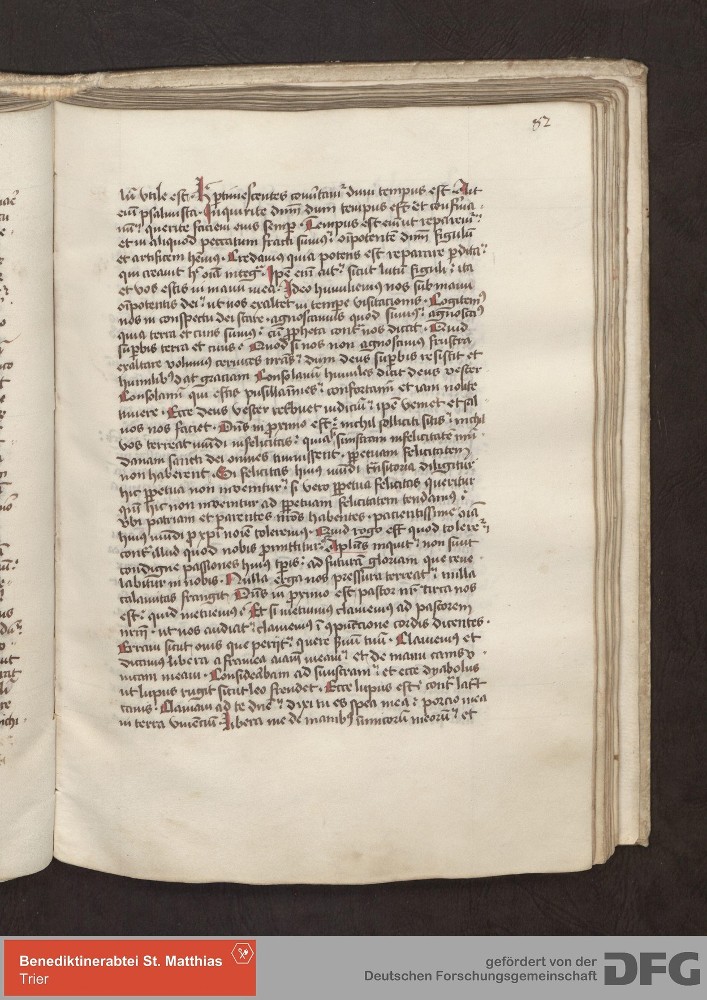 82
lũ vtile est · Hᵉ ptimescentes conu̾tam̾ dum tempus est · Ait
em̃ psalmista · Inquirite dñm dum tempus est et confirma-
mĩ querite faciem eius semp̱ · Tempus est em̃ ut reparem̾
et in aliquod peccatum fracti sum̾ oĩpotentẽ dñm figulũ
et artificem hẽm̾ · Credamus quia potens est reparare p̱dita
qui creauit hͦ oĩa integ̃ · Ip̃e em̃ ait sicut lutũ figuli ita
et vos estis in manu mea · Ideo humiliem̾ nos sub manu
oĩpotentis dei ut nos exaltet in tempe visitacionis · Cogitem̾
nos in conspectu dei stare · agnoscamus quod sum̾ agnoscam̾
quia terra et cinis sum̾ cũ p̱pheta cont̾ nos dicat · Quid
sup̱bis terra et cinis · Quod si nos non agnoscim̾ frustra
exaltare volum̾ ceruices nr̃as dum deus sup̱bis resistit et
humilib̾ dat graciam Consolam̾ humiles dicit deus vester
Consolamĩ qui estis pusillanimes confortamĩ et iam nolite
timere · Ecce deus vester reddet iudiciũ ip̃e veniet et sal
uos nos faciet · Dñs in proximo est nichil solliciti sitis nichil
vos terreat mũdi infelicitas quia si sinistram infelicitatẽ mũ
danam sancti dei om̃es timuissent · p̱petuam felicitatem
non haberent · Si felicitas hui̾ mũdi t̃nsitoria diligitur
hic p̱petua non inuenitur si vero p̱petua felicitas queritur
q̃m̃ hic non inuenitur ad p̱petuam felicitatem tendam̾
vbi patriam et parentes nr̃os habentes · pacientissime oĩa
hui̾ mũdi p̱ xp̃i noĩe tolerem̾ · Quid rogo est quod tolere
cont̾ illud quod nobis promittitur · Apl̃us inquit non sunt
condigne passiones hui̾ tp̱is ad futurã gloriam que reue
labitur in nobis · Nulla ergo nos pressura terreat nulla
calamitas frangit Dñs in proximo est pastor nr̃ circa nos
est quid metuem̾ Et si metuim̾ clamem̾ ad pastorem
nr̃m · ut nos audiat clamem̾ ĩ compũctione cordis dicentes ·
Erraui sicut ouis que perijt quere s̾uum tuũ · Clamem̾ et
dicim̾ libera a framea aĩam meam et de manu canis v
nicam meam · Considerabam ad sinistram et ecce dyabolus
ut lupus rugit sicut leo frendet · Ecce lupus est cont̾ last
canis · Clamaui ad te dñe dixi tu es spes mea porcio mea
in terra viuenciũ · libera me de manib̾ inimicorũ meorũ et
Benediktinerabtei St. Matthias
Trier
gefördert von der
Deutschen Forschungsgemeinschaft
DFG